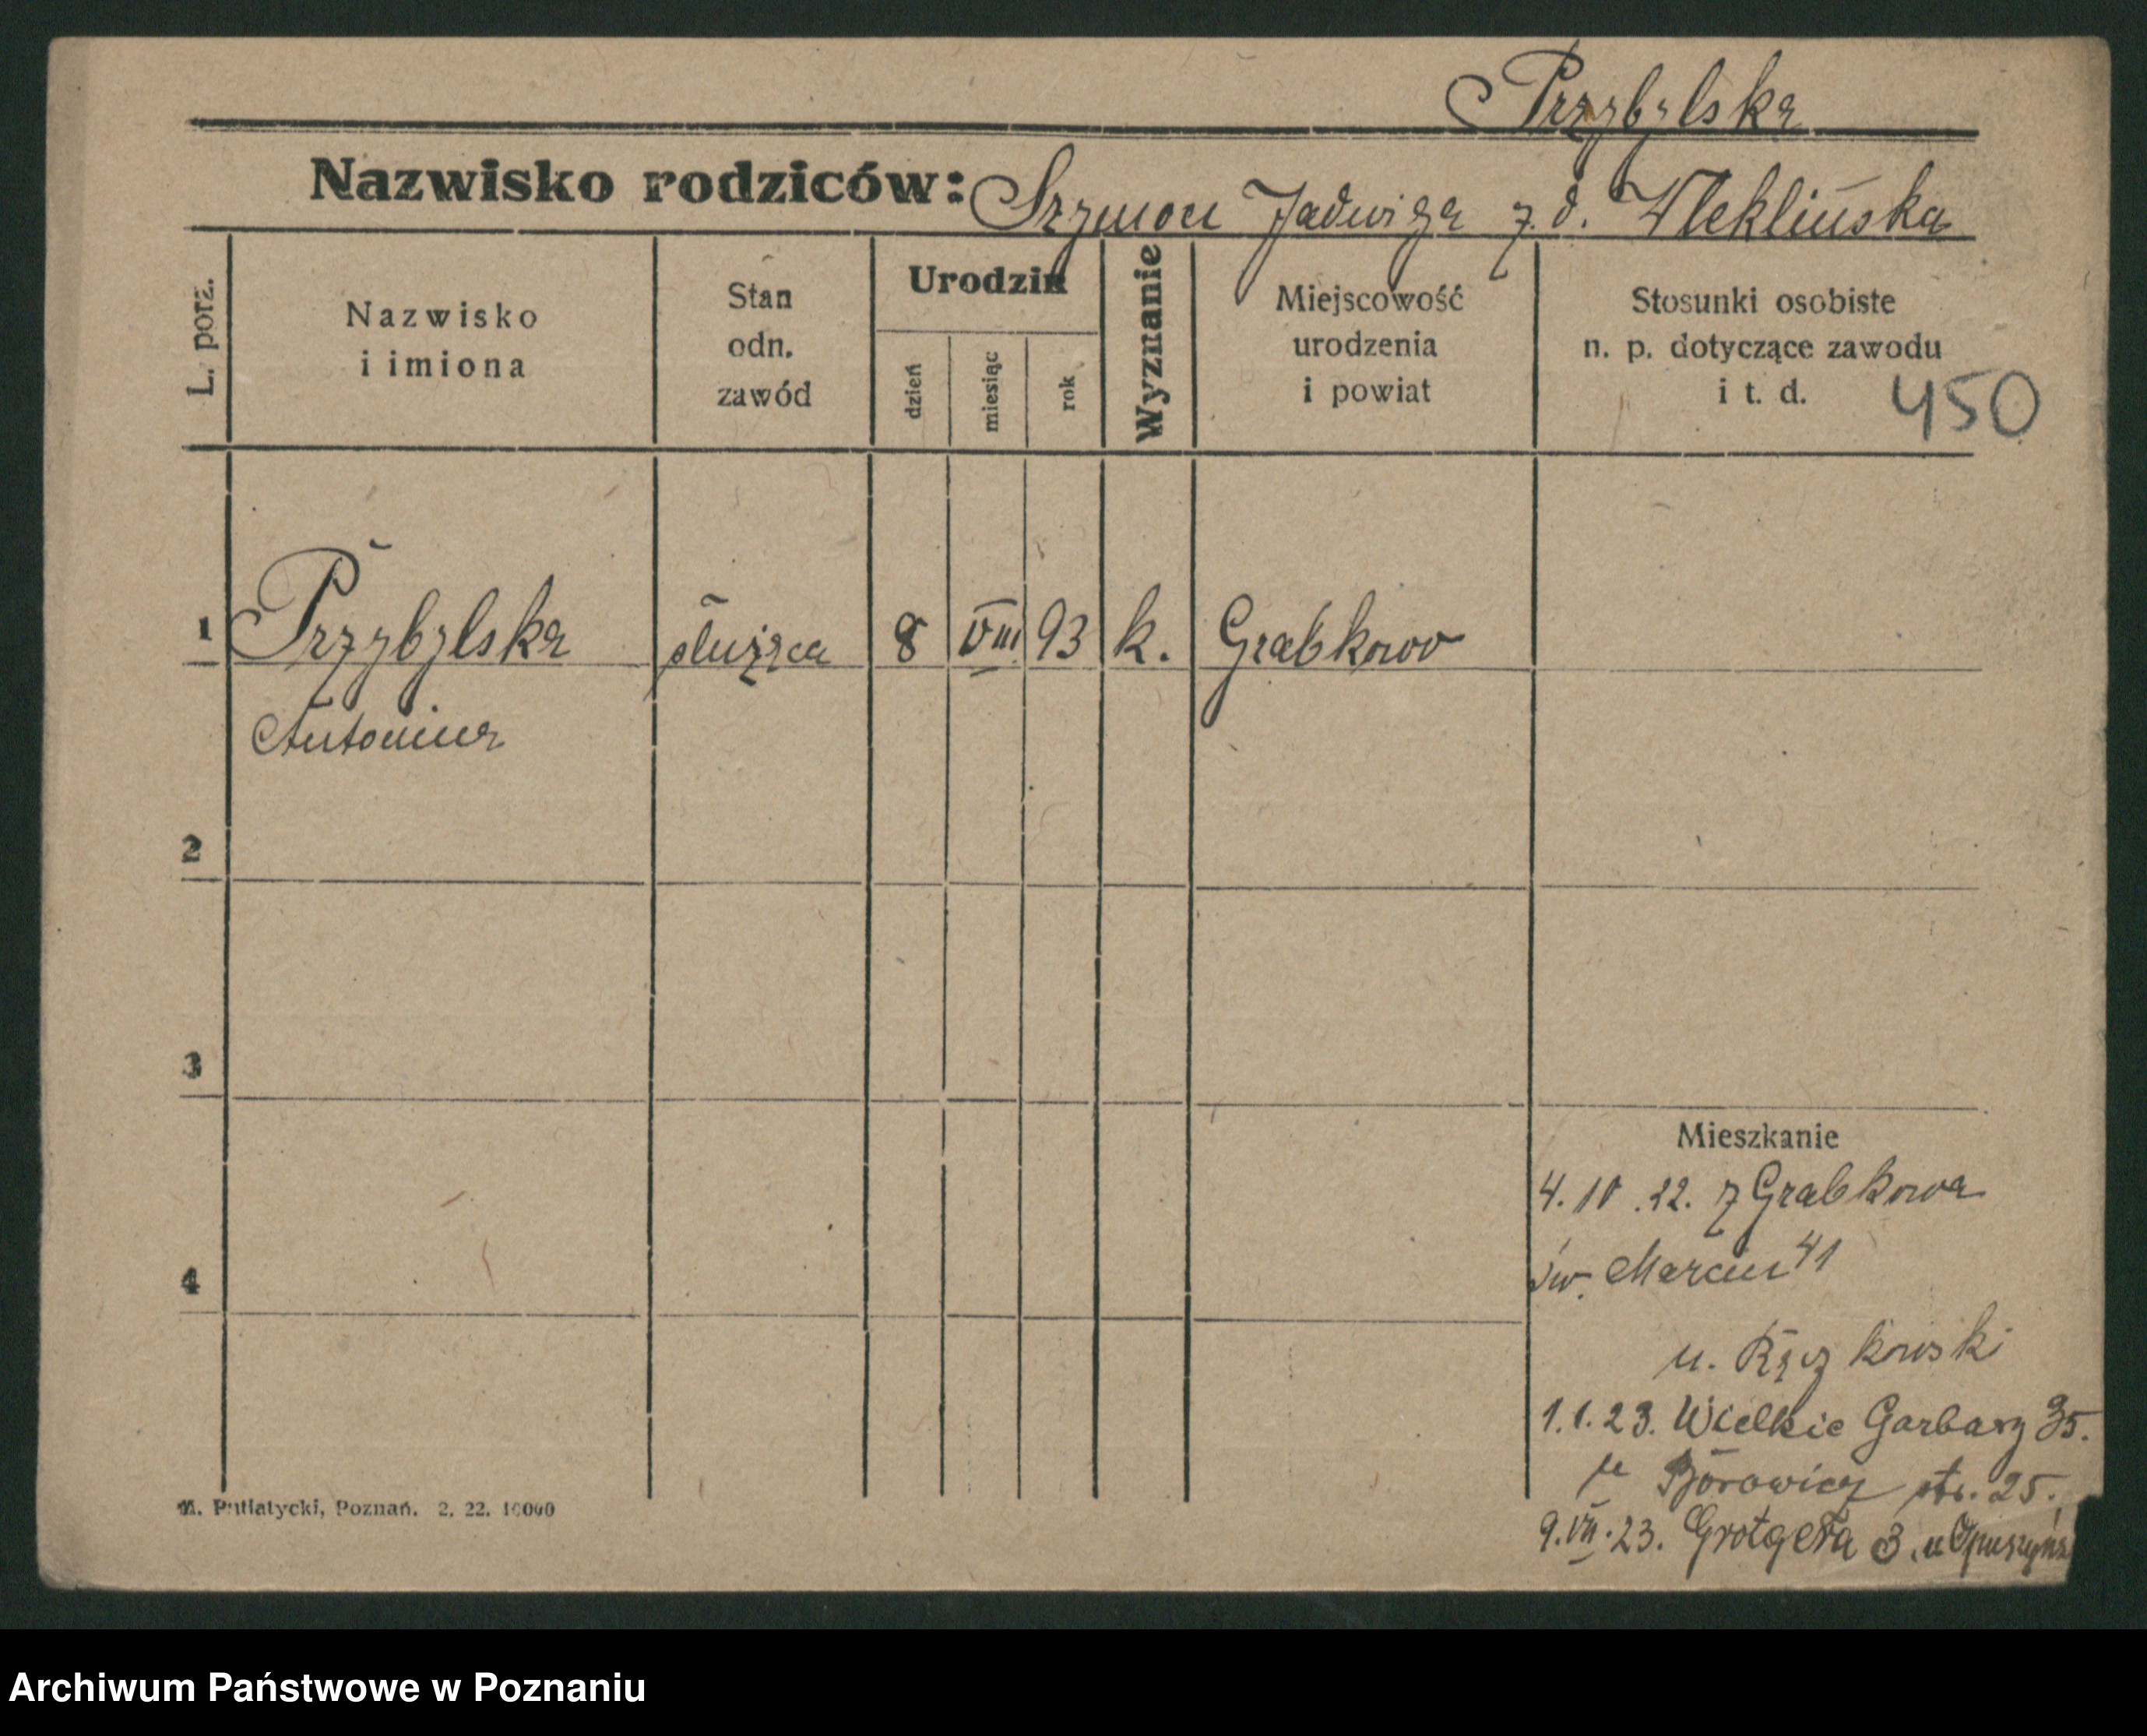 Przybylska
Nazwisko rodziców: Szymon Jadwiga z. d. Wleklińska
L. porz.
Nazwisko
i imiona
Stan
odn.
zawód
Urodzin
dzień
miesiąc
rok
Wyznanie
Miejscowość
urodzenia
i powiat
Stosunki osobiste
n. p. dotyczące zawodu
i t. d.
450
1 Przybylska służąca 8 VIII 93 k. Grabkowo
Antonina
2
3
4
Mieszkanie
4. 10. 22. z Grabkowa
św. Marcin 41
u. Rączkowski
1.1.23. Wielkie Garbary 35.
u Borowicz ptr. 25.
9.VII.23. Grotgera 3. u
M. Putiatycki, Poznań. 2. 22. 10000
Archiwum Państwowe w Poznaniu